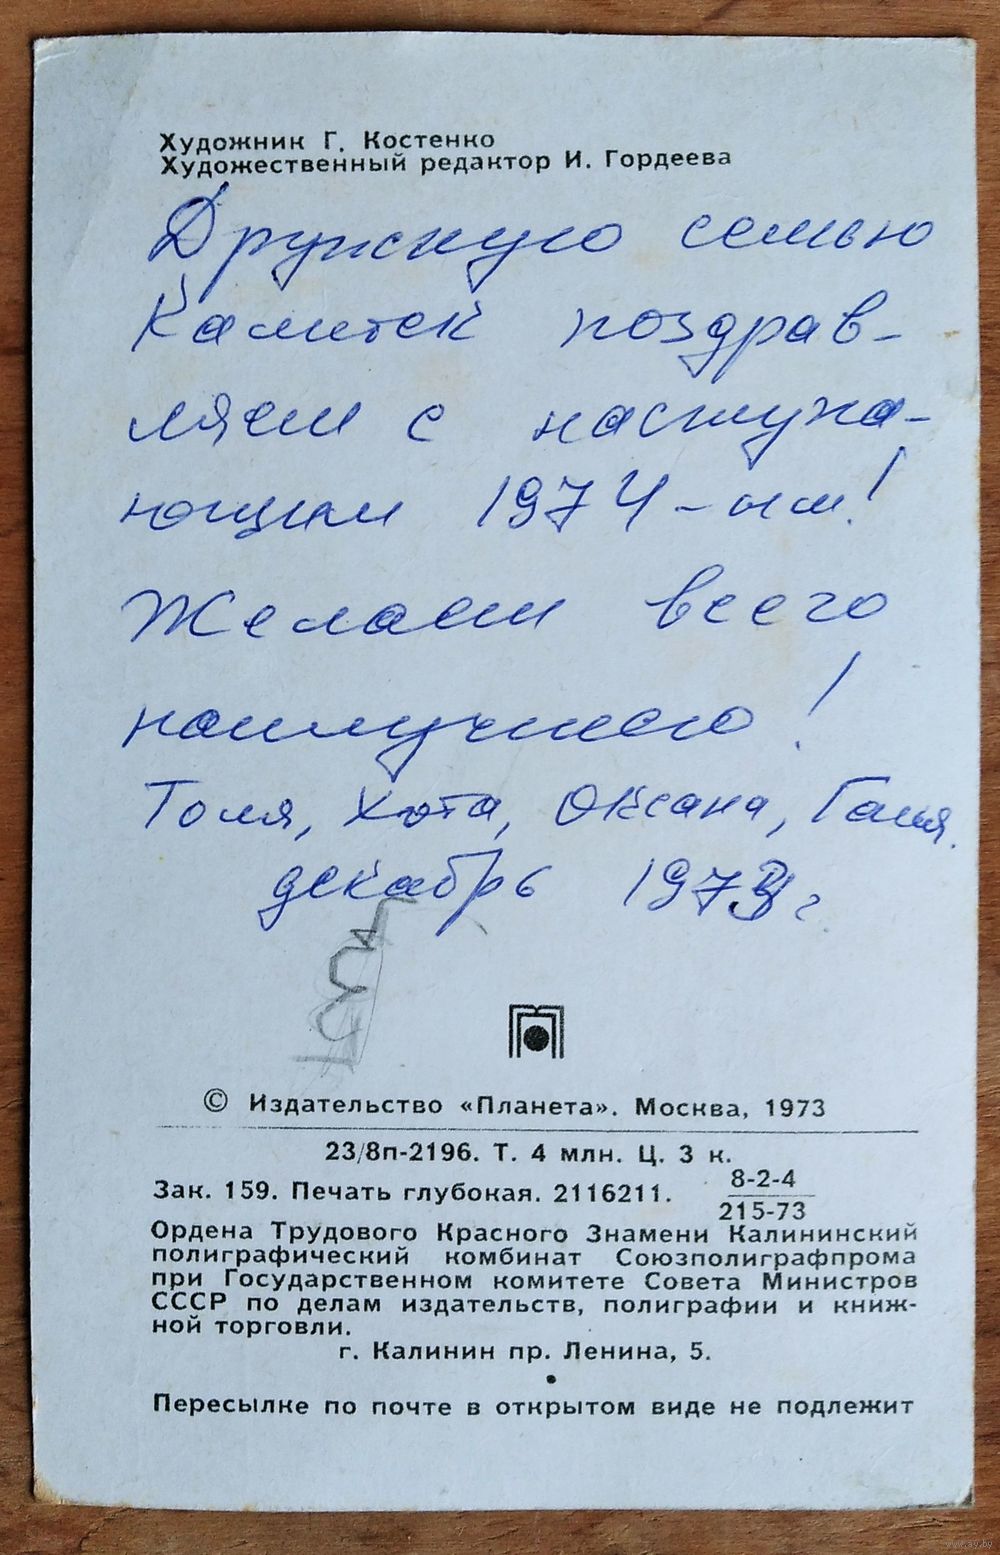 Художник Г. Костенко
Художественный редактор И. Гордеева
Дружную семью
поздрав-
ляем с наступа-
ющим 1974-ым!
Желаем всего
наилучшего!
Толя, Оксана, Галя.
декабрь 1973 г
© Издательство «Планета». Москва, 1973
23/8п-2196. Т. 4 млн. Ц. 3 к.
Зак. 159. Печать глубокая. 2116211. 8-2-4
215-73
Ордена Трудового Красного Знамени Калининский
полиграфический комбинат Союзполиграфпрома
при Государственном комитете Совета Министров
СССР по делам издательств, полиграфии и книж-
ной торговли.
г. Калинин пр. Ленина, 5.
Пересылке по почте в открытом виде не подлежит
www.ay.by